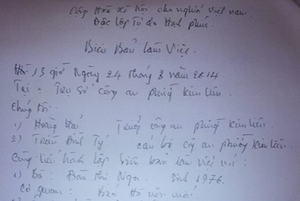 Cộng Hòa Xã Hội chủ nghĩa Việt nam
Độc Lập Tự do Hạnh phúc
Biên Bản Làm Việc.
Hồi 13 giờ Ngày 24 tháng 3 năm 2014
Tại : Trụ Sở công an phường Kim Liên.
Chúng tôi:
1) Trưởng công an phường Kim Liên.
2) Trần Bình Tý cán bộ công an phường Kim Liên.
Cùng tiến hành lập biên bản làm việc với:
1) Bà: Bần Thị Nga. Sinh 1976.
Cơ quan: